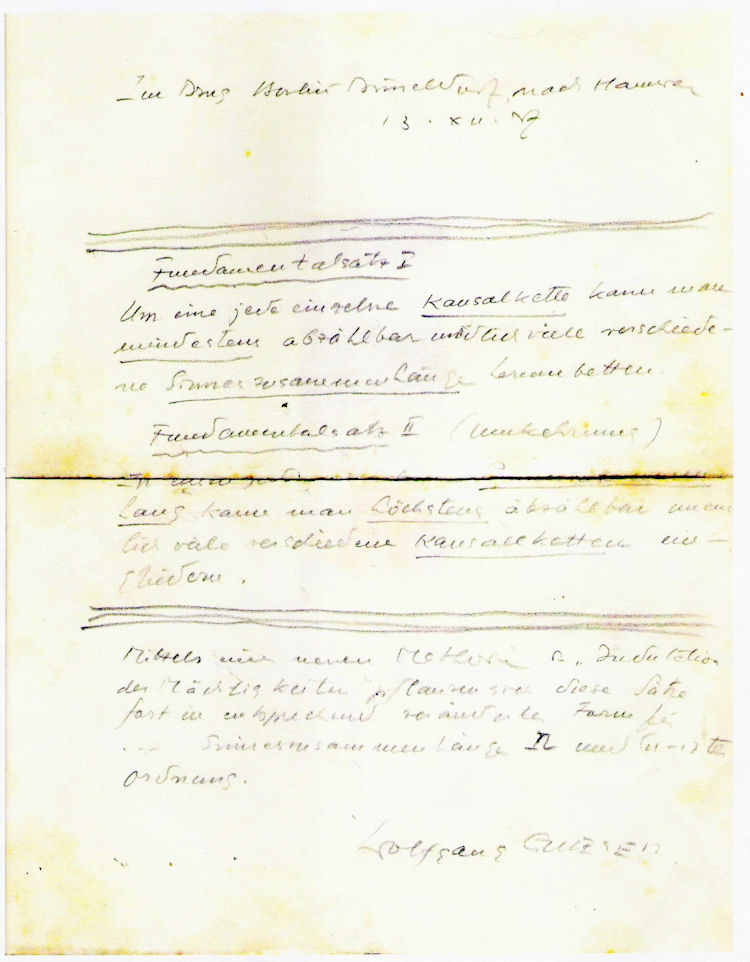 Im Zug Berlin Düsseldorf, nach
13. XII.
Fundamentalsatz I
Um eine jede einzelne Kausalkette kann man
mindestens abzählbar unendlich viele verschiede-
ne Sinneszusammenhänge herumbetten.
Fundamentalsatz II (Umkehrung)
In einen
hang kann man höchstens abzählbar unend
lich viele verschiedene Kausalketten ein-
gliedern.
Mittels einer neuen Methode "Induktion
der Mächtigkeiten" pflanzen sich diese Sätze
fort in entsprechend veränderter Form für
Sinneszusammenhänge n und (n-1)te
Ordnung.
Wolfgang